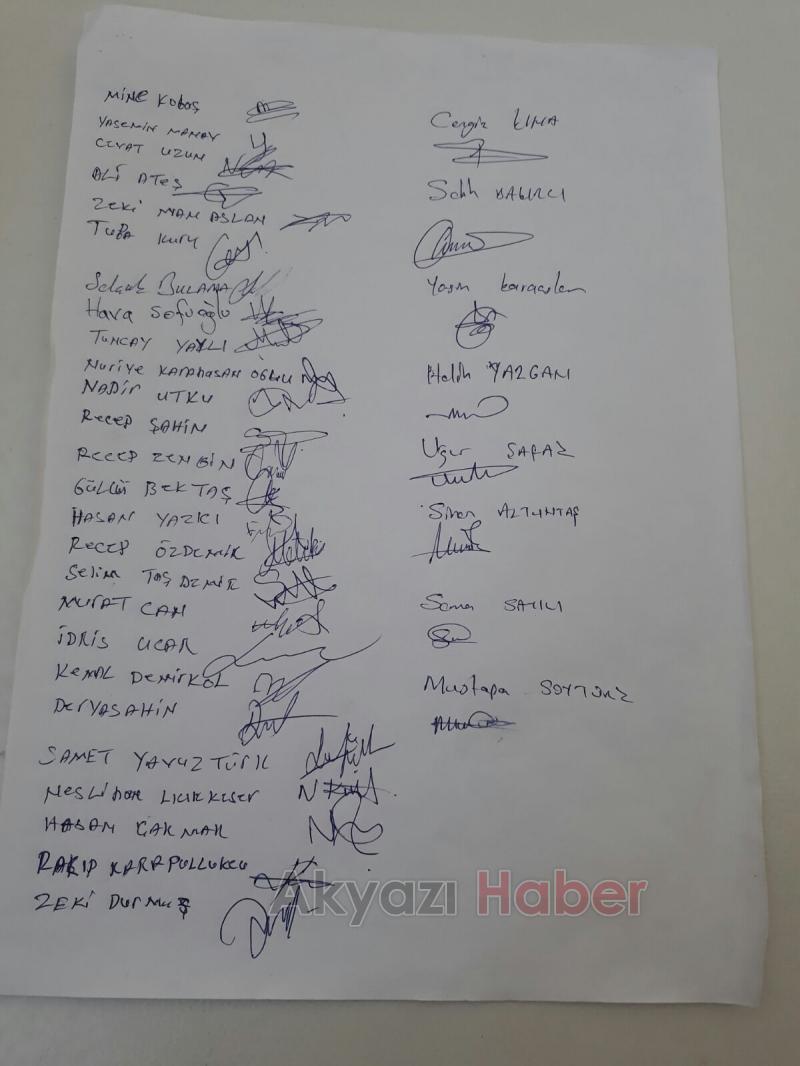 MİNE KOBAŞ
YASEMİN MANAV
CEVAT UZUN
ALİ ATEŞ
ZEKİ MAMASLAN
TUBA KURU
Selçuk BULAMA
Hava Sofuoğlu
TUNCAY YAYLI
Nuriye KARAHASANOĞLU
NADİR UTKU
RECEP ŞAHİN
RECEP ZENGİN
GÜLLÜ BEKTAŞ
HASAN YAZICI
RECEP ÖZDEMİR
Selim TAŞDEMİR
MURAT CAN
İDRİS UCAR
KEMAL DEMİRKOL
DERYA SAHİN
SAMET YAVUZTÜRK
NESLİHAN
HASAN ÇAKMAK
RAKIP KARAPULLUKCU
ZEKİ DURMUŞ
Cengiz KINA
Salih
Yasin karaaslan
Halih YAZGAN
Uğur ŞAFAK
Sinan ALTUNTAŞ
Soner SATILI
Mustafa SOYTÜRK
Akyazı Haber